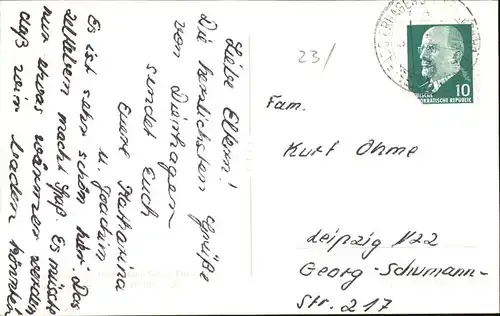 Liebe Eltern!
Die herzlichsten Grüße
von Dierhagen
sendet Euch
Eure Katharina
u. Joachim
Es ist sehr schön hier. Das
Zelteln macht Spaß. Es müsste
nur etwas wärmer werden
daß wir baden könnten
23/
10
DEUTSCHE
DEMOKRATISCHE REPUBLIK
Fam.
Kurt Ohme
Leipzig N22
Georg-Schumann-
Str. 217